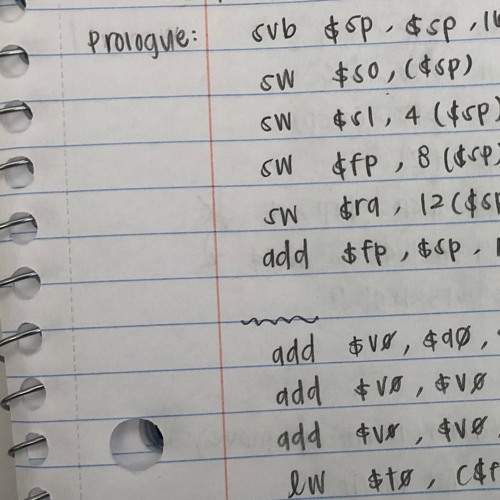 Prologue: sub $sp, $sp, 16
sw $s0, ($sp)
sw $s1, 4($sp)
sw $fp, 8($sp)
sw $ra, 12($sp
add $fp, $sp, 1
add $v0, $a0,
add $v0, $v0
add $v0, $v0,
lw $t0, ($f